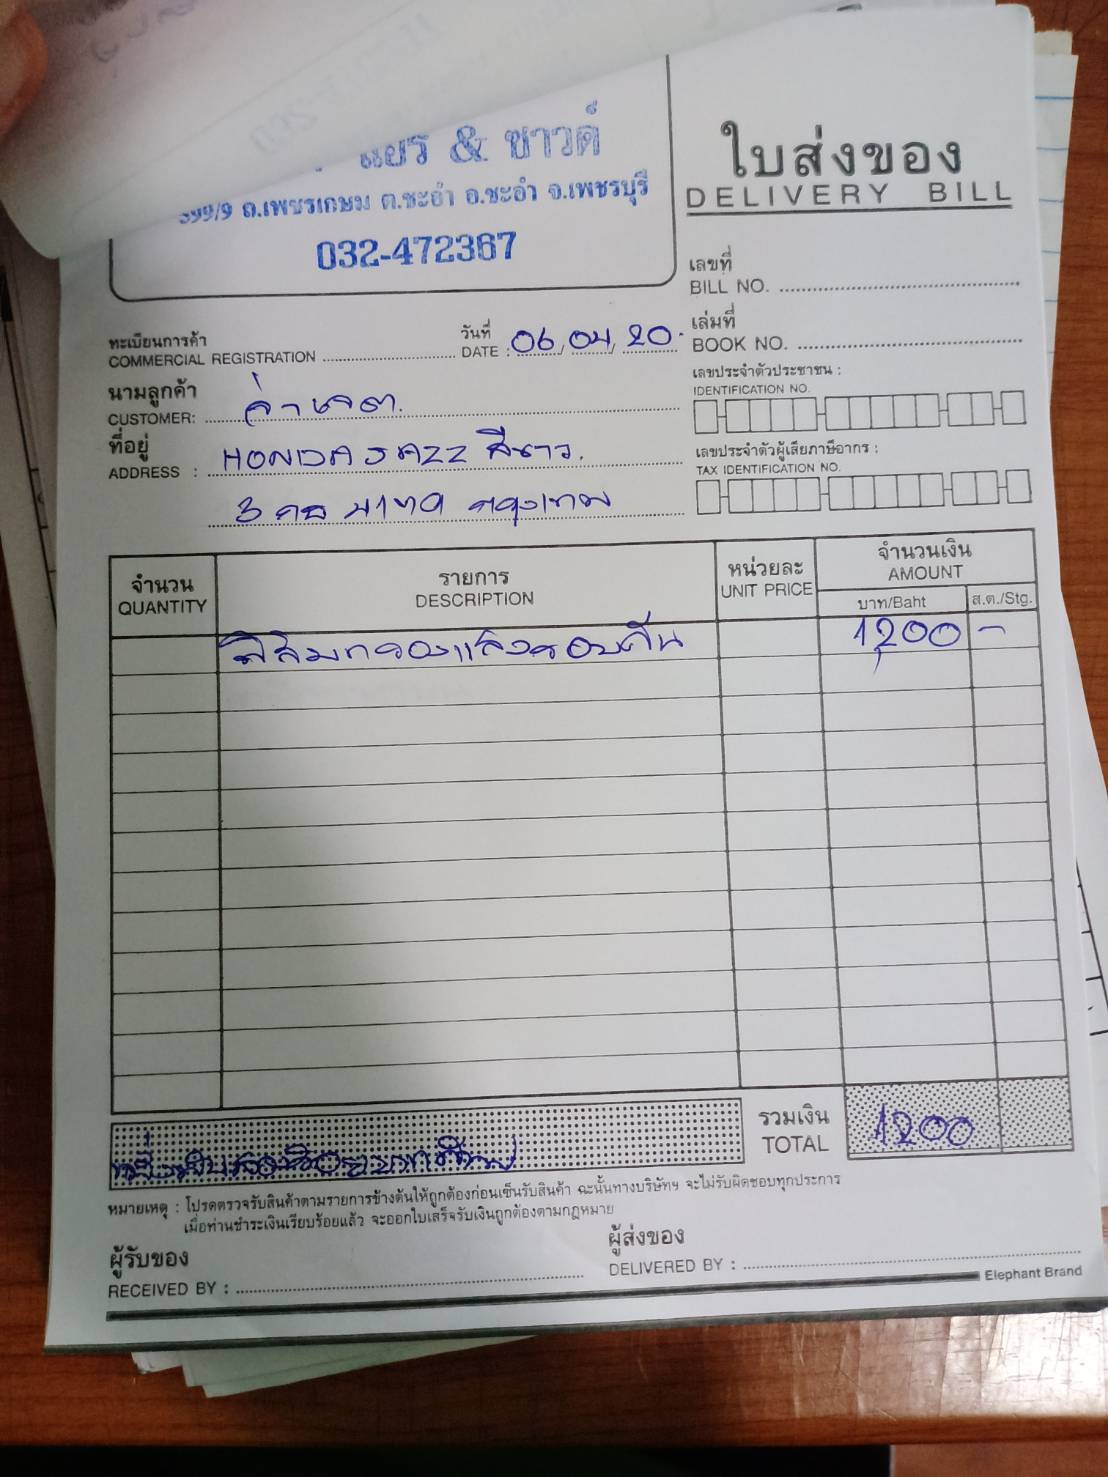 แอร์ & ซาวด์
399/9 ถ.เพชรเกษม ต.ชะอำ อ.ชะอำ จ.เพชรบุรี
032-472367
ใบส่งของ
DELIVERY BILL
เลขที่
BILL NO.
ทะเบียนการค้า
COMMERCIAL REGISTRATION
วันที่
DATE : 06/04/20
เล่มที่
BOOK NO.
นามลูกค้า
CUSTOMER: จ่าเจต.
ที่อยู่
ADDRESS : HONDA JAZZ สีขาว.
3 กธ กรุงเทพ
เลขประจำตัวประชาชน :
IDENTIFICATION NO.
เลขประจำตัวผู้เสียภาษีอากร :
TAX IDENTIFICATION NO.
จำนวน
QUANTITY
รายการ
DESCRIPTION
หน่วยละ
UNIT PRICE
จำนวนเงิน
AMOUNT
บาท/Baht
ส.ต./Stg.
ฟิล์มกรองแสงรอบคัน 1,200 -
รวมเงิน
TOTAL
1200
หมายเหตุ : โปรดตรวจรับสินค้าตามรายการข้างต้นให้ถูกต้องก่อนเซ็นรับสินค้า ฉะนั้นทางบริษัทฯ จะไม่รับผิดชอบทุกประการ
เมื่อท่านชำระเงินเรียบร้อยแล้ว จะออกใบเสร็จรับเงินถูกต้องตามกฎหมาย
ผู้รับของ
RECEIVED BY :
ผู้ส่งของ
DELIVERED BY :
Elephant Brand